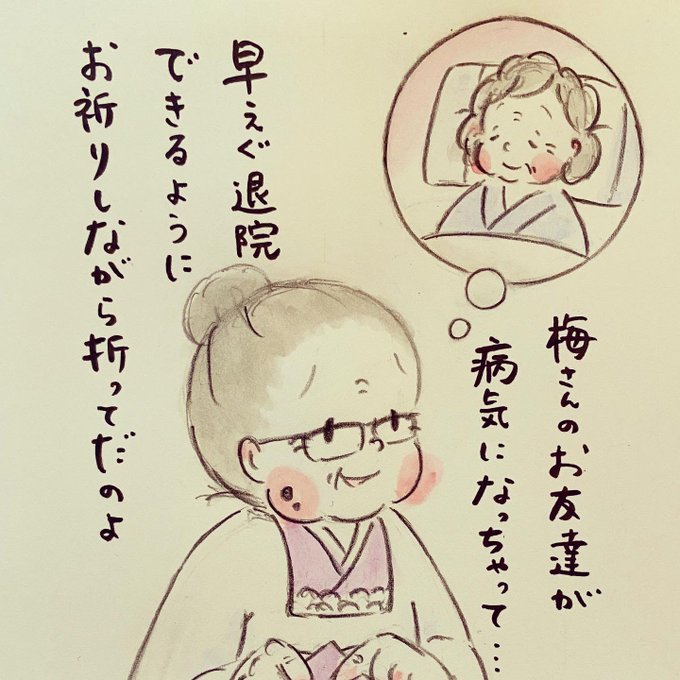 梅さんのお友達が
病気になっちゃって…
早えぐ退院
できるように
お祈りしながら折ってだのよ